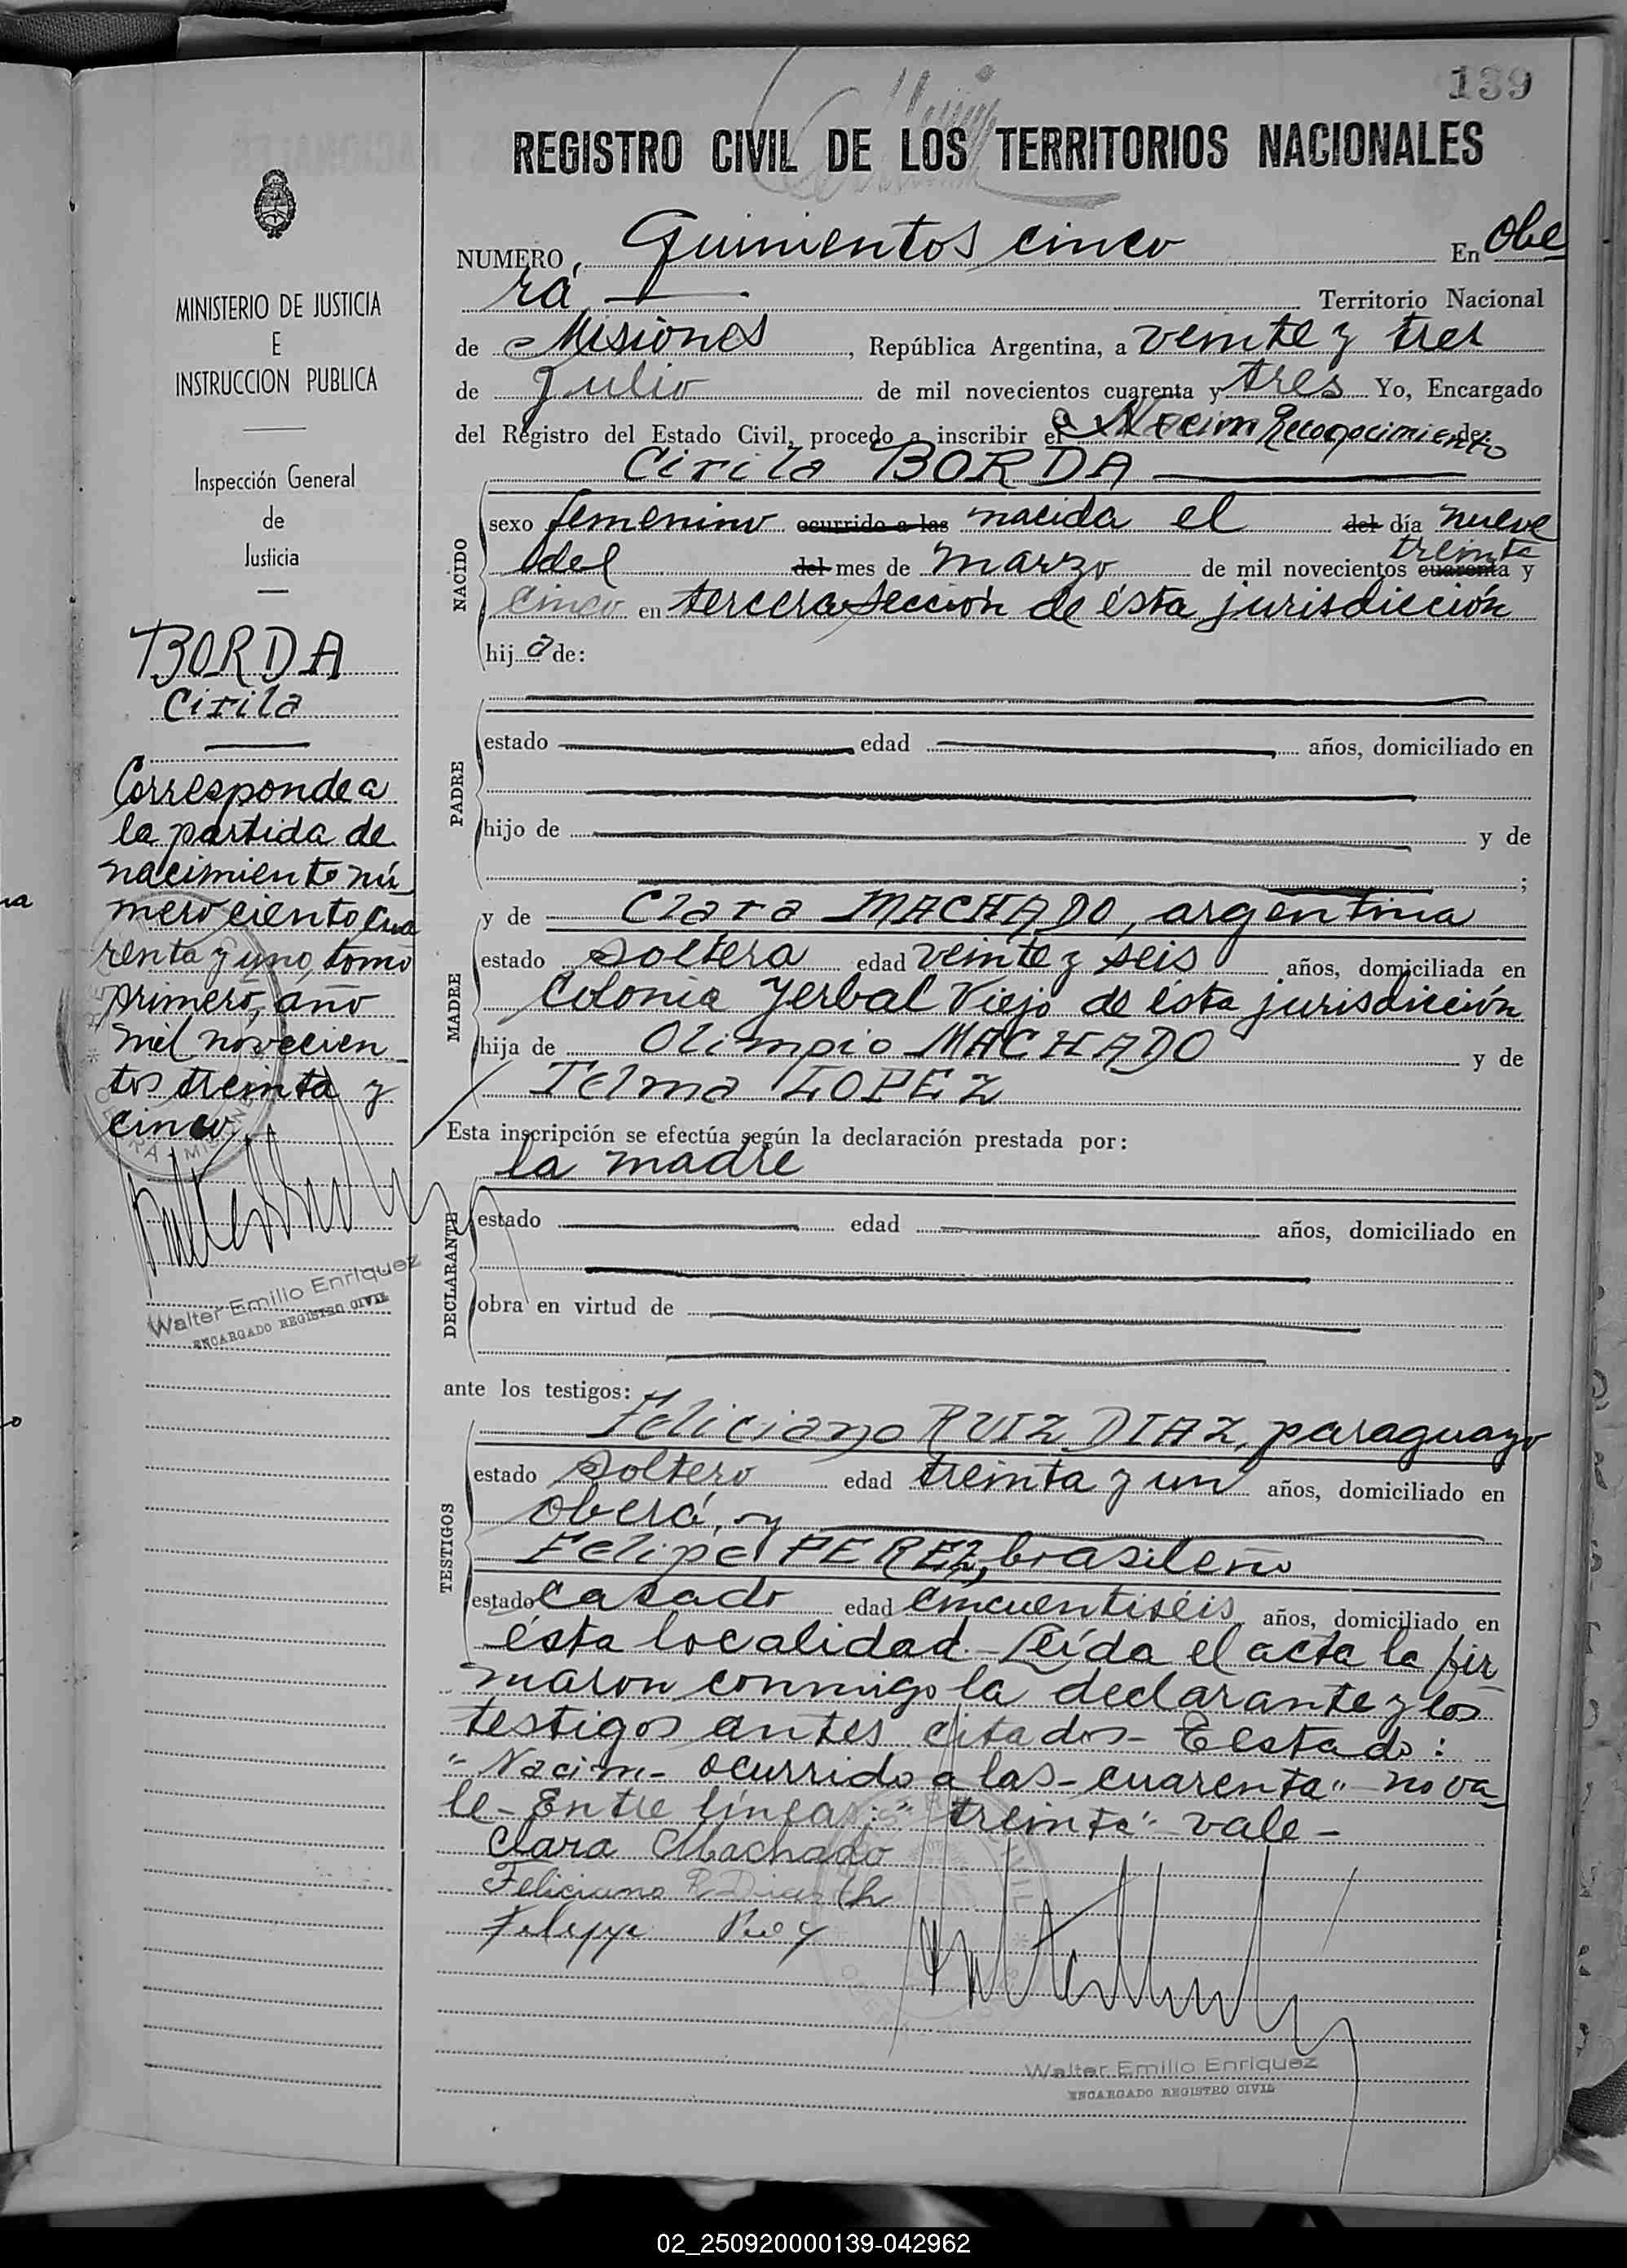 139
REGISTRO CIVIL DE LOS TERRITORIOS NACIONALES
MINISTERIO DE JUSTICIA
E
INSTRUCCION PUBLICA
Inspección General
de
Justicia
BORDA
Cirila
Corresponde a
la partida de
nacimiento nú
mero ciento cua
renta y uno, tomo
primero, año
mil novecien
tos treinta y
cinco.
Walter Emilio Enriquez
ENCARGADO REGISTRO CIVIL
NUMERO, Quinientos cinco En Obe
rá Territorio Nacional
de Misiones, República Argentina, a veinte y tres
de Julio de mil novecientos cuarenta y tres Yo, Encargado
del Registro del Estado Civil, procedo a inscribir el Nacim Reconocimiento de:
Cirila BORDA
NACIDO
sexo femenino ocurrido a las nacida el del día nueve
del del mes de marzo de mil novecientos cuarenta treinta y
cinco en tercera sección de ésta jurisdicción
hij a de:
PADRE
estado edad años, domiciliado en
hijo de y de
;
MADRE
y de Clara MACHADO, argentina
estado soltera edad veinte y seis años, domiciliada en
Colonia Yerbal Viejo de ésta jurisdicción
hija de Olimpio MACHADO y de
Telma LOPEZ
Esta inscripción se efectúa según la declaración prestada por:
la madre
DECLARANTE
estado edad años, domiciliado en
obra en virtud de
ante los testigos:
TESTIGOS
Feliciano RUIZ DIAZ, paraguayo
estado soltero edad treinta y un años, domiciliado en
Oberá, y
Felipe PEREZ, brasileño
estado casado edad cincuentiséis años, domiciliado en
ésta localidad. Leída el acta la fir
maron conmigo la declarante y los
testigos antes citados - Testado:
"Nacim - ocurrido a las - cuarenta" no va
le - Entre líneas: "treinta" vale -
Clara Machado
Feliciano R Dias
Walter Emilio Enriquez
ENCARGADO REGISTRO CIVIL
02_250920000139-042962